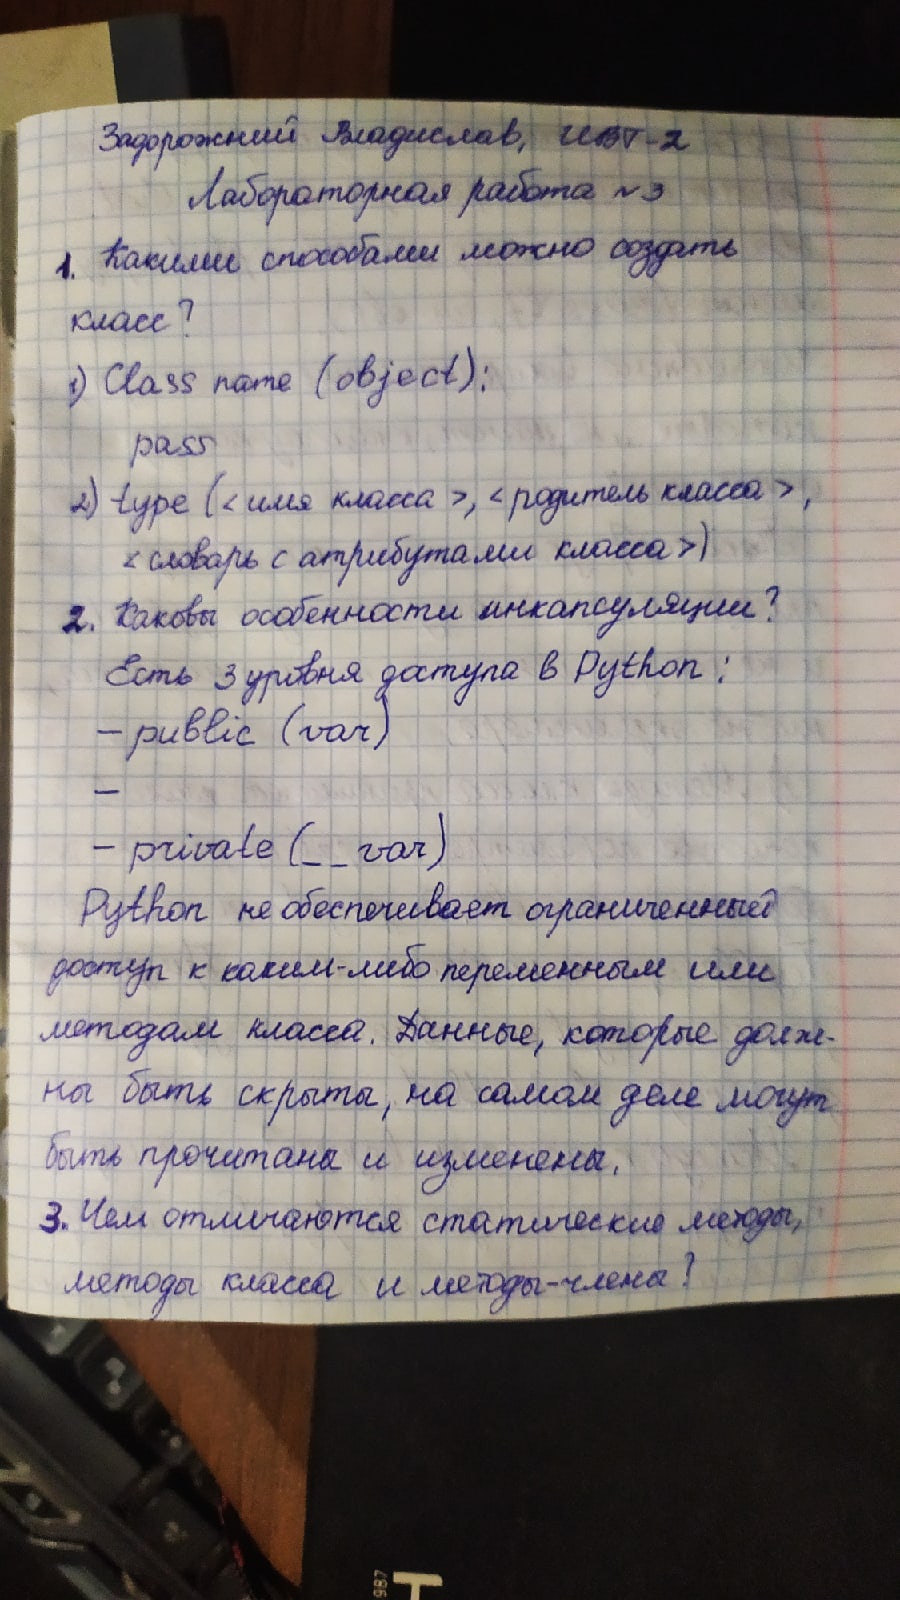 Задорожний Владислав, ИВТ-2
Лабораторная работа №3
1. Какими способами можно создать
класс?
1) Class name (object):
pass
2) type (<имя класса>, <родитель класса>,
<словарь с атрибутами класса>)
2. Каковы особенности инкапсуляции?
Есть 3 уровня доступа в Python:
– public (var)
–
– private (__var)
Python не обеспечивает ограниченный
доступ к каким-либо переменным или
методам класса. Данные, которые долж-
ны быть скрыты, на самом деле могут
быть прочитаны и изменены.
3. Чем отличаются статические методы,
методы класса и методы-члены?
987